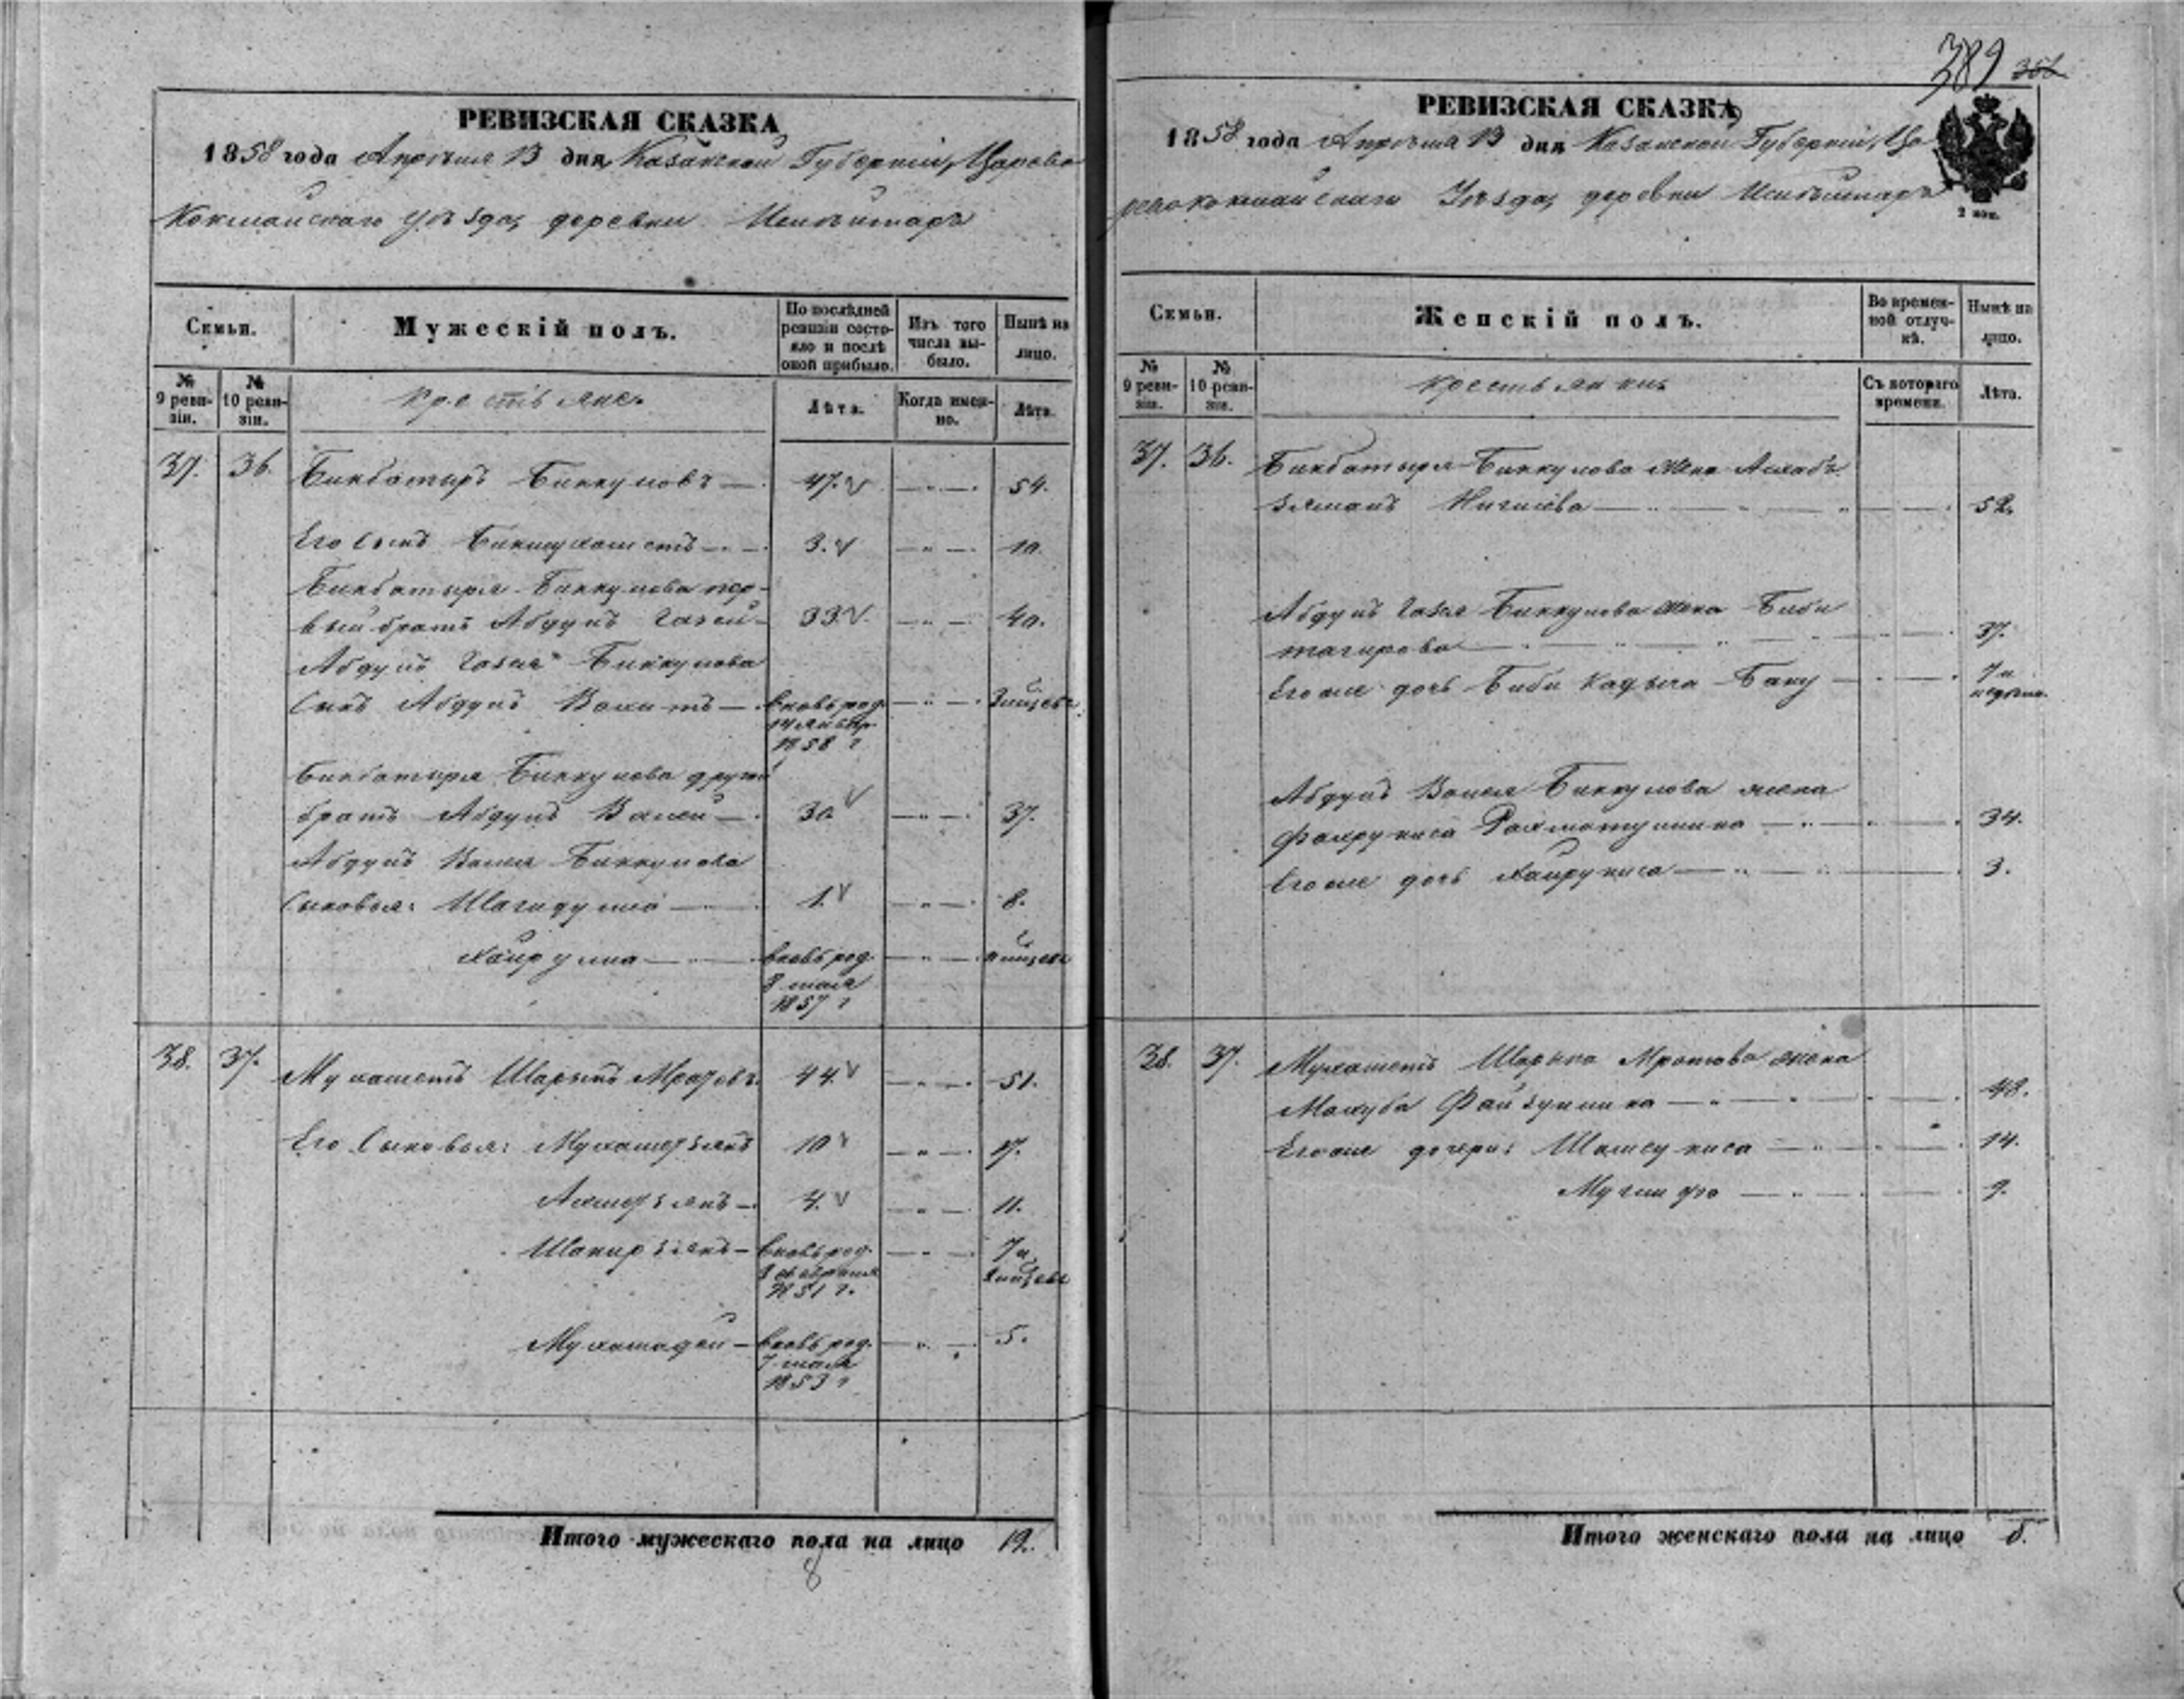 РЕВИЗСКАЯ СКАЗКА
1858 года Апрѣля 13 дня, Казанской Губерніи, Царево
Кокшайскаго Уѣзда, деревни
Семьи.
Мужескій полъ.
По послѣдней ревизіи состояло и послѣ оной прибыло.
Изъ того числа выбыло.
Нынѣ на лицо.
№ 9 ревизіи.
№ 10 ревизіи.
Крестьяне.
Лѣта.
Когда именно.
Лѣта.
37. 36. Бикбатыръ Биккуловъ — 47. — " — 54.
Его сынъ Бикмухаметъ — 3. — " — 10.
Бикбатыря Биккулова пер-
вый братъ Абдулъ Газей — 33. — " — 40.
Абдулъ Газея Биккулова
сынъ Абдулъ Вахитъ — вновь род. — " — 3 мѣсяцъ
14 Январ.
1858 г
Бикбатыря Биккулова другой
братъ Абдулъ Валей — 30 — " — 37.
Абдулъ Валея Биккулова
сыновья: Шагидулла — 1. — " — 8.
Хайрулла — вновь род. — " — 11 мѣсяцъ
8 мая
1857 г
38. 37. Мухаметъ Шарыпъ Мратовъ 44 — " — 51.
Его сыновья: Мухаметзянъ 10 — " — 17.
Ахметзянъ — 4. — " — 11.
Шакирзянъ — вновь род. — " —
1851 г.
Мухамадей — вновь род. — " — 5.
7 мая
1853 г
Итого мужескаго пола на лицо 12.
8
389
РЕВИЗСКАЯ СКАЗКА
1858 года Апрѣля 13 дня Казанской Губерніи, Ца
ревококшайскаго Уѣзда, деревни
2 коп.
Семьи.
Женскій полъ.
Во временной отлучкѣ.
Нынѣ на лицо.
№ 9 ревизіи.
№ 10 ревизіи.
Крестьянки
Съ котораго времени.
Лѣта.
37. 36. Бикбатыря Биккулова жена
52.
Абдулъ Газея Биккулова жена Биби
тагирова — " — 37.
Его же дочь Биби Кадыча Бану — 7 и
недѣль.
Абдулъ Валея Биккулова жена
Фахруниса Рахматуллина — " — 34.
Его же дочь Хайруниса — " — 3.
38. 37. Мухаметъ Шарыпа Мратова жена
Махуба Файзуллина — " — 48.
Его же дочери: Шамсуниса — " — 14.
— " — 9.
Итого женскаго пола на лицо 8.